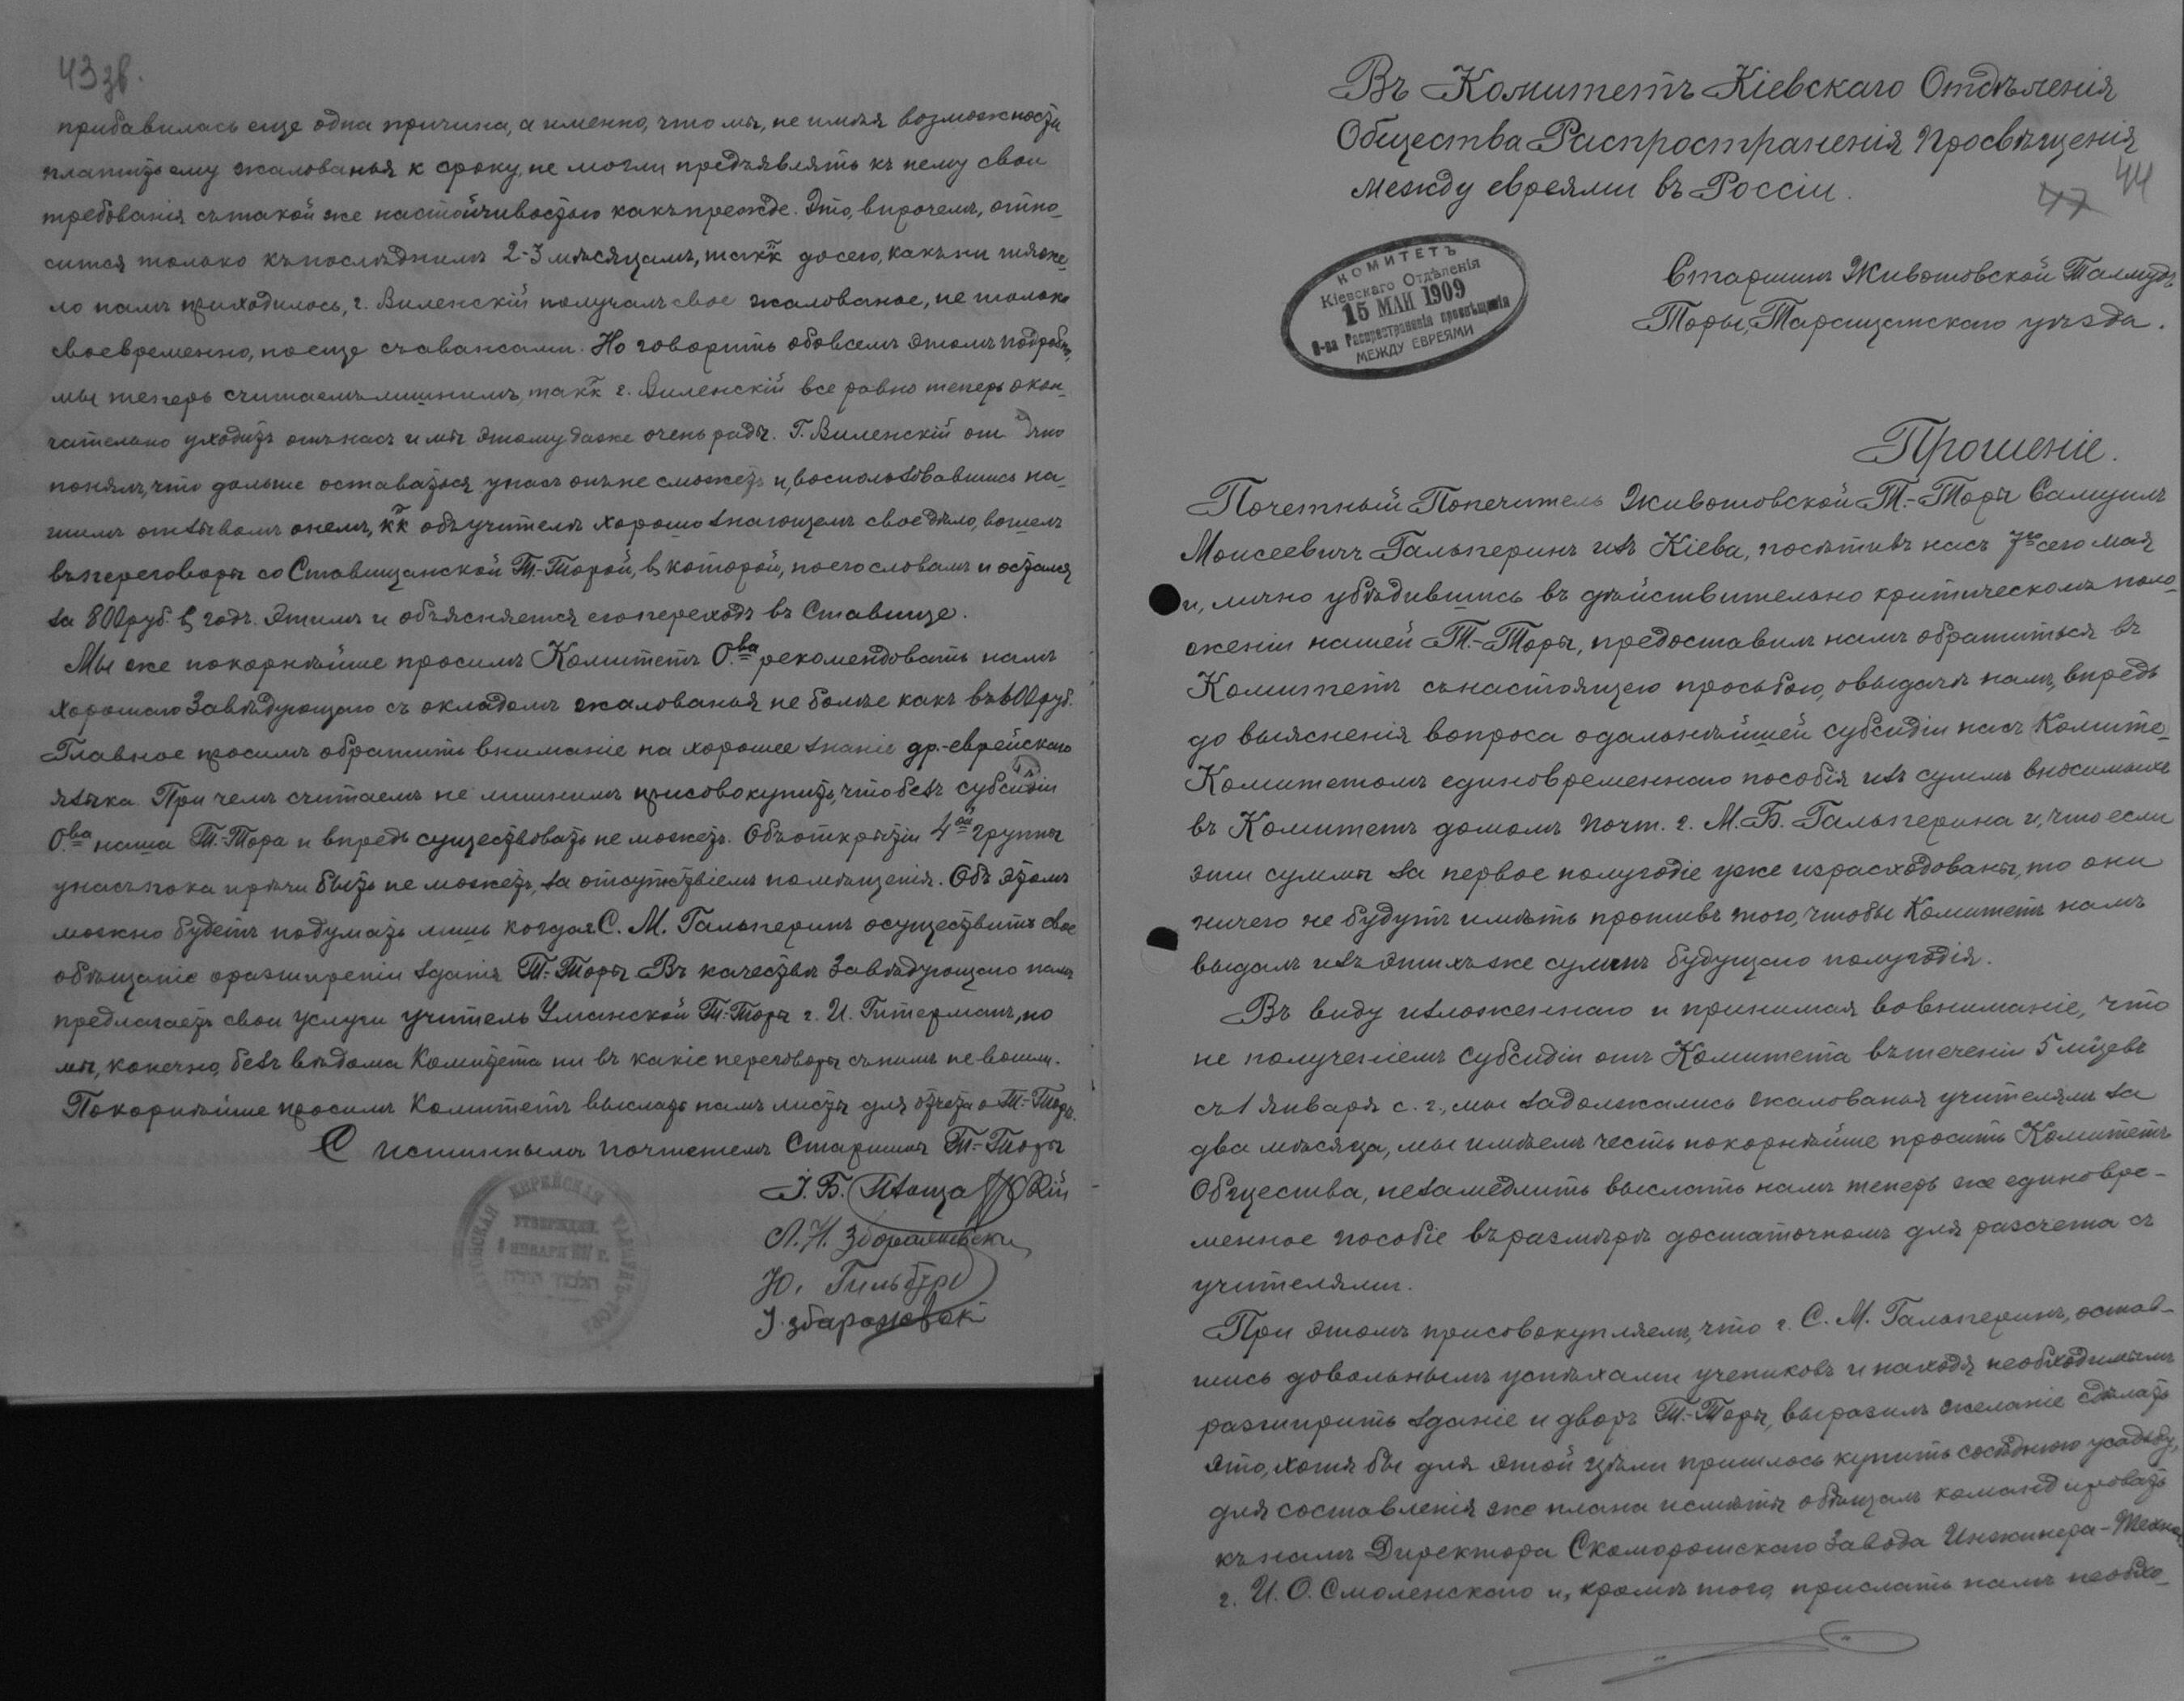 43 зв.
прибавилась еще одна причина, а именно, что мы, не имѣя возможности
платить ему жалованья к сроку, не могли предъявлять къ нему свои
требованія съ такой же настойчивостью какъ прежде. Это, впрочемъ, отно-
сится только къ послѣднимъ 2-3 мѣсяцамъ, такъ к до сего, какъ ни тяже-
ло намъ приходилось, г. Виленскій получалъ свое жалованое, не только
своевременно, но еще съ авансами. Но говорить обо всемъ этомъ подробно,
мы теперь считаемъ лишнимъ, такъ к г. Виленскій все равно теперь окон-
чательно уходитъ отъ насъ и мы этому даже очень рады. Г. Виленскій
понялъ, что дольше оставаться у насъ онъ не сможетъ и, воспользовавшись на-
шимъ отзывомъ о немъ, кк объ учителѣ хорошо знающемъ свое дѣло, вошелъ
въ переговоры со Ставищанской Т.-Торой, в которой, по его словамъ и остался
за 800 руб. в годъ. Этимъ и объясняется его переходъ въ Ставище.
Мы же покорнѣйше просимъ Комитетъ О.ва рекомендовать намъ
хорошаго Завѣдующаго съ окладомъ жалованья не болѣе какъ въ 600 руб.
Главное просимъ обратить вниманіе на хорошее знаніе др.-еврейскаго
языка. При чемъ считаемъ не лишнимъ присовокупить, что безъ субсидіи
О.ва наша Т.-Тора и впредь существовать не можетъ. Объ открытіи 4ой группы
у насъ пока и рѣчи быть не можетъ, за отсутствіемъ помѣщенія. Объ этомъ
можно будетъ подумать лишь когда С. М. Гальперинъ осуществитъ свое
обѣщаніе о расширеніи зданія Т.-Торы. Въ качествѣ Завѣдующаго намъ
предлагаетъ свои услуги учитель Уманской Т.-Торы г. И. Гитерманъ, но
мы, конечно, безъ вѣдома Комитета ни въ какіе переговоры съ нимъ не вошли.
Покорнѣйше просимъ Комитетъ выслать намъ листы для отчета о Т.-Торѣ.
С истиннымъ почтеніемъ Старшины Т.-Торы
І. Б.
Л. Н.
Ю. Гильбур
І. збарожевск
ЕВРЕЙСКАЯ
УТВЕРЖДЕН.
Въ Комитетъ Кіевскаго Отдѣленія
Общества Распространенія Просвѣщенія
между евреями въ Россіи.
47 44
КОМИТЕТЪ
Кіевскаго Отдѣленія
15 МАЙ 1909
О-ва Распространенія просвѣщенія
МЕЖДУ ЕВРЕЯМИ
Старшинъ Животовской Талмудъ
Торы, Таращанскаго уѣзда.
Прошеніе.
Почетный Попечитель Животовской Т.-Торы Самуилъ
Моисеевичъ Гальперинъ изъ Кіева, посѣтивъ насъ 7го сего мая
и, лично убѣдившись въ дѣйствительно критическомъ поло-
женіи нашей Т.-Торы, предоставилъ намъ обратиться въ
Комитетъ съ настоящею просьбою, о выдачѣ намъ, впредь
до выясненія вопроса о дальнѣйшей субсидіи насъ Комите-
Комитетомъ единовременнаго пособія изъ суммъ вносимыхъ
въ Комитетъ домомъ почт. г. М. Б. Гальперина и, что если
эти суммы за первое полугодіе уже израсходованы, то они
ничего не будутъ имѣть противъ того, чтобы Комитетъ намъ
выдалъ изъ этихъ же суммъ будущаго полугодія.
Въ виду изложеннаго и принимая во вниманіе, что
не полученіемъ субсидіи отъ Комитета въ теченіи 5 мѣцевъ
съ 1 января с. г., мы задолжались жалованья учителямъ за
два мѣсяца, мы имѣемъ честь покорнѣйше просить Комитетъ
Общества, незамедлить выслать намъ теперь же единовре-
менное пособіе въ размѣрѣ достаточномъ для разсчета съ
учителями.
При этомъ присовокупляемъ, что г. С. М. Гальперинъ, остав-
шись довольнымъ успѣхами учениковъ и находя необходимымъ
разширить зданіе и дворъ Т.-Торы, выразилъ желаніе сдѣлать
это, хотя бы для этой цѣли пришлось купить сосѣднюю усадьбу,
для составленія же плана и смѣты обѣщалъ командировать
къ намъ Директора Скоморошскаго Завода Инжинера-Техно
г. И. О. Смоленскаго и, кромѣ того, прислать намъ необхо-